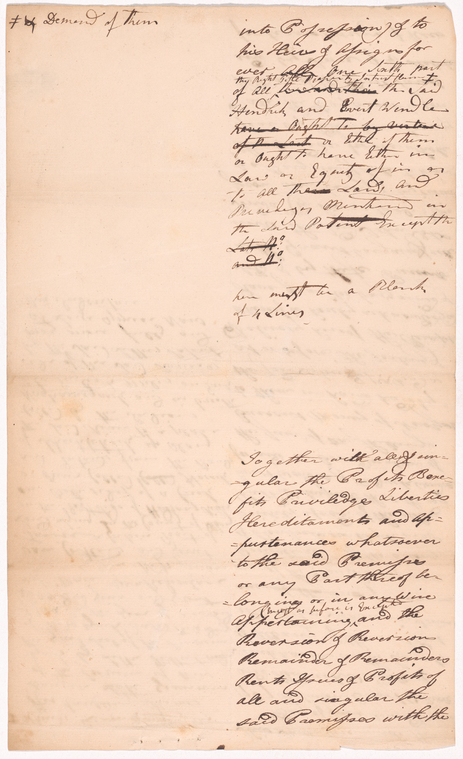 # & Demand of them
into Possession & to
his Heirs & Assigns for
ever all one Sixth part
of all the said
Hendrick and Evert Wendle
have a Right to by virtue
of or Either of them
or Ought to have Either in
Law or Equity of in or
to all the Lands and
Priviledges Mentioned in
the said Patent, Except the
Lots N:o
and N:o
here must be a Blank
of 4 Lines
Together with all & sin-
-gular the Profits Bene-
fits Priviledge Liberties
Hereditaments and Ap-
-purtenances whatsoever
to the said Premisses
or any Part thereof be
-longing or in any wise
(Except as before is Excepted)
Appertaining and the
Reversion & Reversions
Remainder & Remainders
Rents Issues & Profits of
all and singular the
said Premisses with the